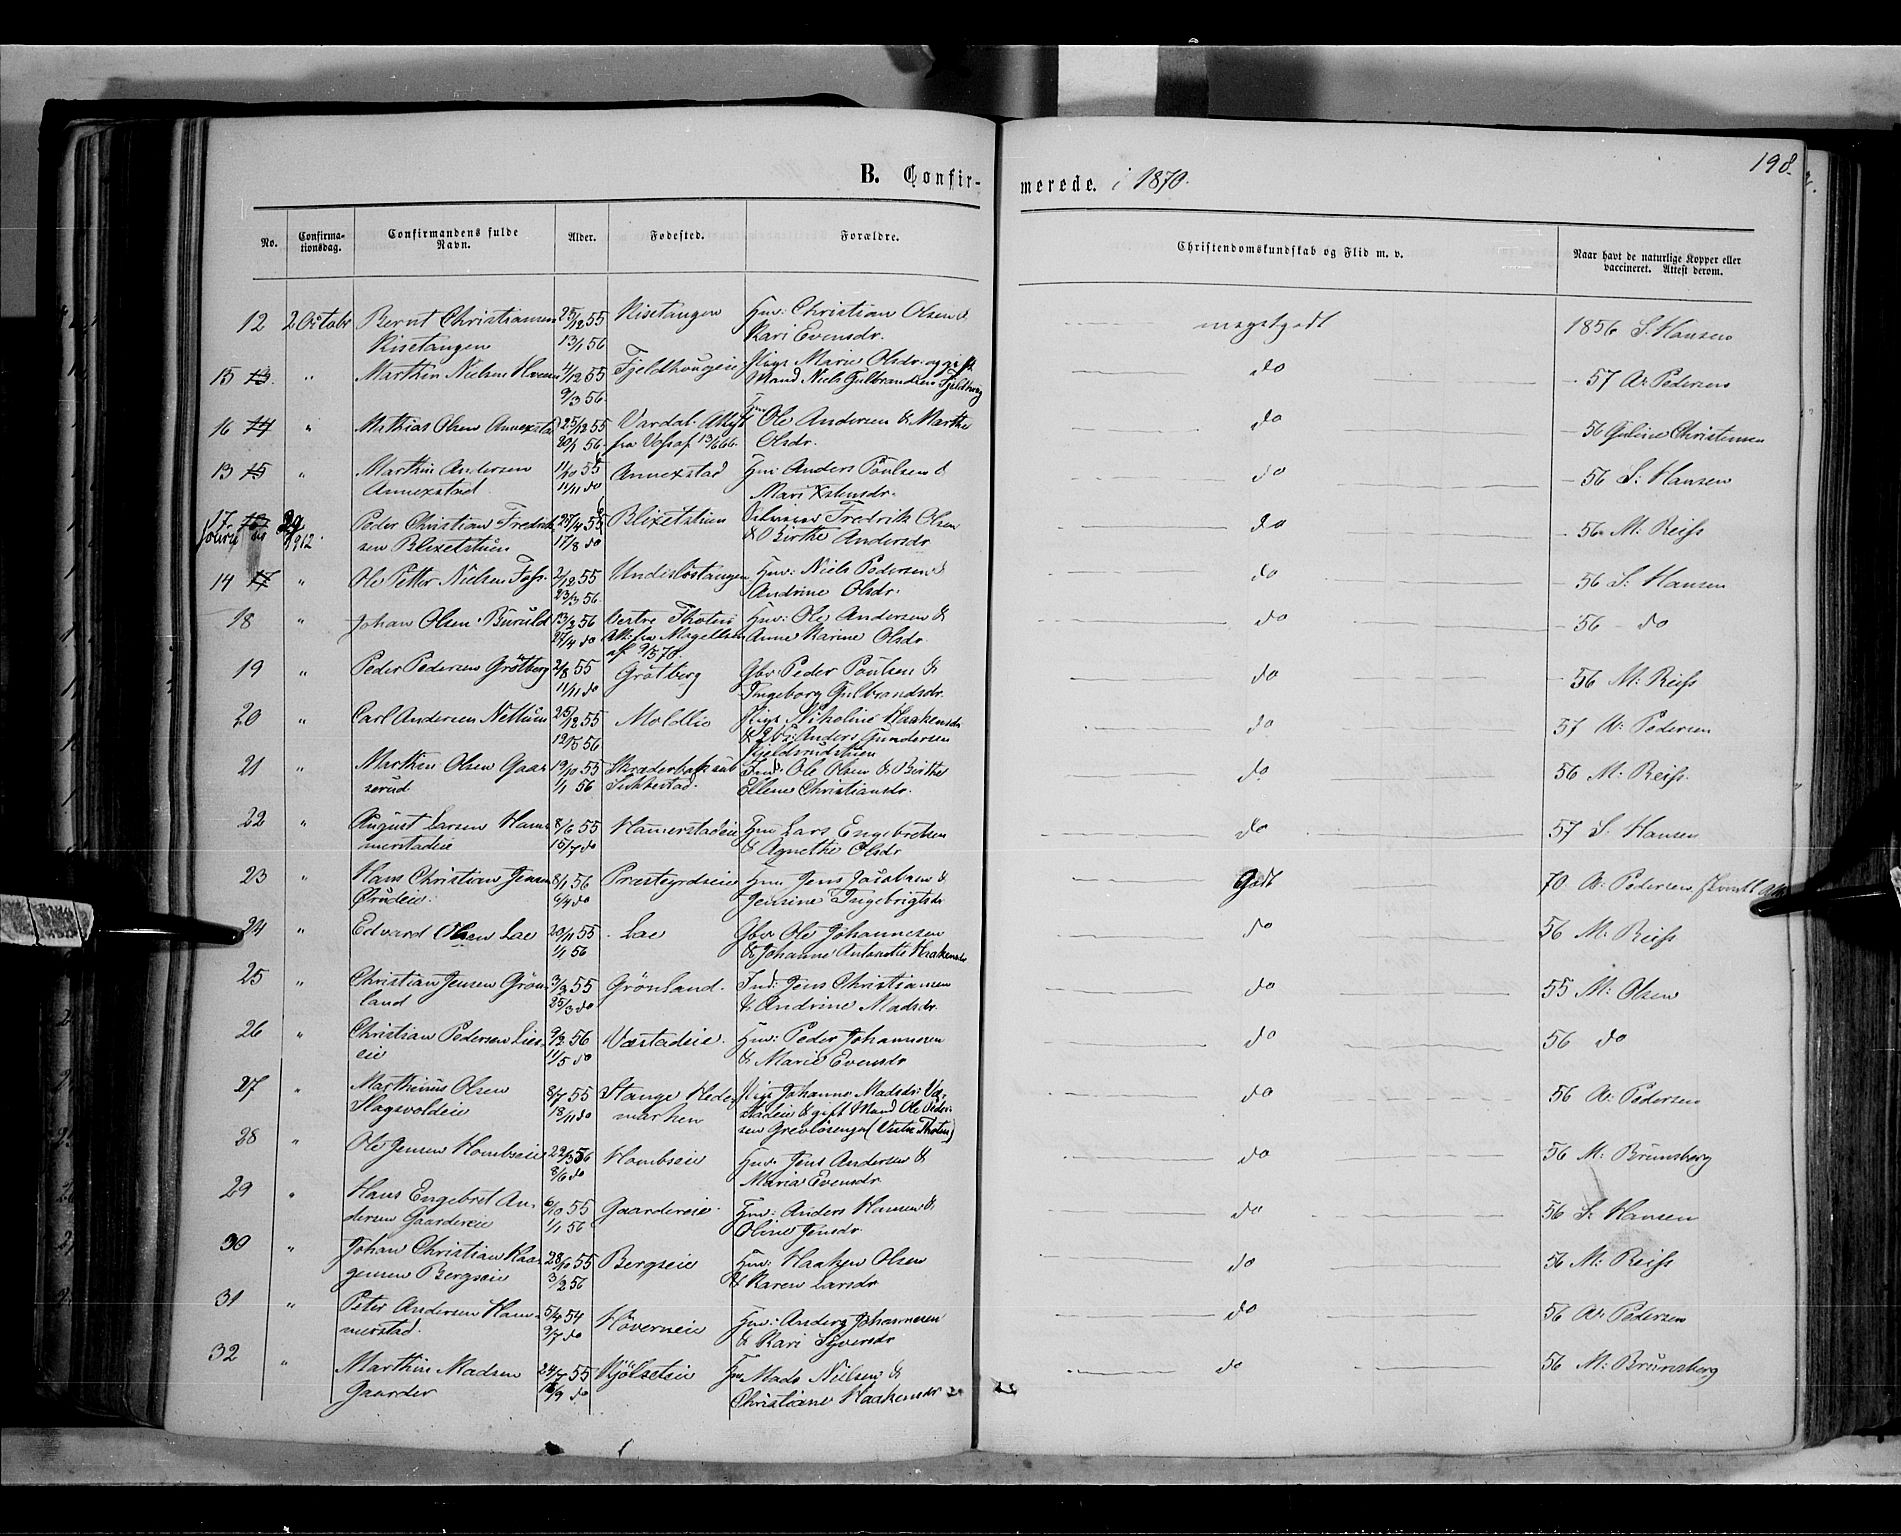 198.
B. Confir-
merede. i 1870.
No.
Confirma-
tionsdag.
Confirmandens fulde
Navn.
Alder.
Fødested.
Forældre.
Christendomskundskab og Flid m. v.
Naar havt de naturlige Kopper eller
vaccineret. Attest derom.
12 2 Octobr Bernt Christiansen 25/12 55 Risetangen Hmd: Christian Olsen & megetgodt 1856 S. Hansen
Risetangen 13/1 56 Kari Evensdr.
15 13. " Marthin Nielsen 4/12 55 Fjeldhougeie Pige Marie Olsdr. og gift do - 57 A: Pedersen
9/3 56. Mand Niels Gulbrandsen
16 14 " Mathias Olsen Annexstad 25/12 55 Vardal. Ole Andersen & Marthe do - 56 Guline Christensen
20/1 56. fra 13/6 66. Olsdr.
13 15 " Marthin Andersen 11/10 55 Annexstad Hmd Anders Poulsen & do - 56 S: Hansen
Annexstad. 11/11 do Mari
17. 16 29 Peder Christian Fredrik- 27/4 55 Blixetstuen Fredrik Olsen do - 56 M: Reiss
1912. sen Blixetstuen 17/8 do & Birthe Andersdr
14 17 " Ole Petter Nielsen Foss. 2/12 55 Hmd: Niels Pedersen & do - 56 S: Hansen
23/3 56. Andrine Olsdr.
18 " Johan Olsen 13/2 56 Vestre Thoten Hmd: Ole Andersen & do - 56 do
27/4 do Att: fra Magelssen Anne Karine Olsdr.
af 9/5 70.
19 " Peder Pedersen Grötberg 2/8 55 Grötberg Gbr Peder Poulsen & do - 56 M: Reiss
11/11 do Ingeborg Gulbrandsdr.
20 " Carl Andersen Nettum 25/12 55 Moldlie Pige Nikoline Haakensdr do 57 A: Pedersen
12/5 56 & Anders Gundersen
Kjeldsrudstuen
21 " Marthin Olsen Gaar- 19/10 55 Skræderbak Ind: Ole Olsen & Birthe do 56 M: Reiss.
serud. 1/1 56 Ellene Christiansdr.
22 " August Larsen Ham- 8/6 55 Hamerstadeie Hmd Lars Engebretsen do 57 S. Hansen
merstadeie 15/7 do & Agnethe Olsdr
23 " Hans Christian Jensen 8/1 56 Præstegrdseie Hmd Jens Jacobsen & Godt 70 A: Pedersen
6/4 do Jensine Ingebrigtsdr
24 " Edvard Olsen Lae 20/11 55 Lae Gbr Ole Johannesen do 56 M: Reiss
1/1 56 & Johanne Antonette Haakensdr
25 " Christian Jensen Grön- 3/3 55 Grönland. Ind: Jens Christiansen do 55 M: Olsen
land 25/3 do & Andrine Madsdr.
26 " Christian Pedersen Lies- 9/2 56 Væstadeie. Hmd: Peder Johannesen do 56 do
eie 11/5 do & Marie Evensdr
27 " Marthinus Olsen 8/7 55 Stange Hede- Pige Johanne Madsdr. Væ- do 56 A: Pedersen
Slagsvoldeie 18/11 do marken stadeie & gift Mand Ole Peder-
sen Grevlösengen (Vestre Thoten)
28 " Ole Jensen Hombseie 22/3 56 Hombseie Hmd. Jens Andersen & do 56 M: Brunsberg
8/6 do Maria Evensdr
29 " Hans Engebret An- 6/10 55 Gaardereie Hmd: Anders Hansen & do 56 S. Hansen
dersen Gaardereie 1/1 56 Oline Jensdr
30 " Johan Christian Haa- 28/10 55 Bergseie Hmd: Haaken Olsen do 56 M: Reiss
gensen Bergseie 3/2 56 & Karen Larsdr
31 " Peter Andersen Ham- 5/4 54 Höverneie Hmd: Anders Johannesen do 56 A: Pedersen
merstad. 9/7 do & Kari Syversdr
32 " Marthin Madsen 24/7 55 Kjölseteie Hmd Mads Nielsen & do 56 M: Brunsberg
Gaarder 16/9 do Christiane Haakensdr